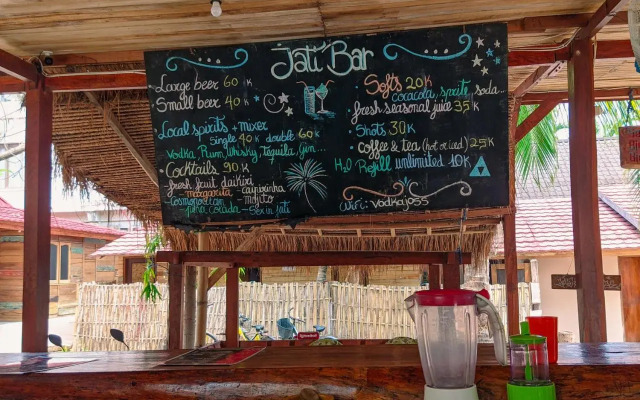 Jati Bar
Large beer 60 K
Small beer 40 K
Local spirits + mixer
Single 40 K double 60 K
Vodka, Rum, Whisky, Tequila, Gin...
Cocktails 90 K
fresh fruit daikiri
- margarita - caypirinha
Cosmopolitan - mojito
piña colada - Sex in Jati
Softs 20K
cocacola, sprite, soda...
fresh seasonal juice 35 K
Shots 30K
coffee & Tea (hot or iced) 25K
H2O Refill unlimited 10K
Wifi: vodkaj055